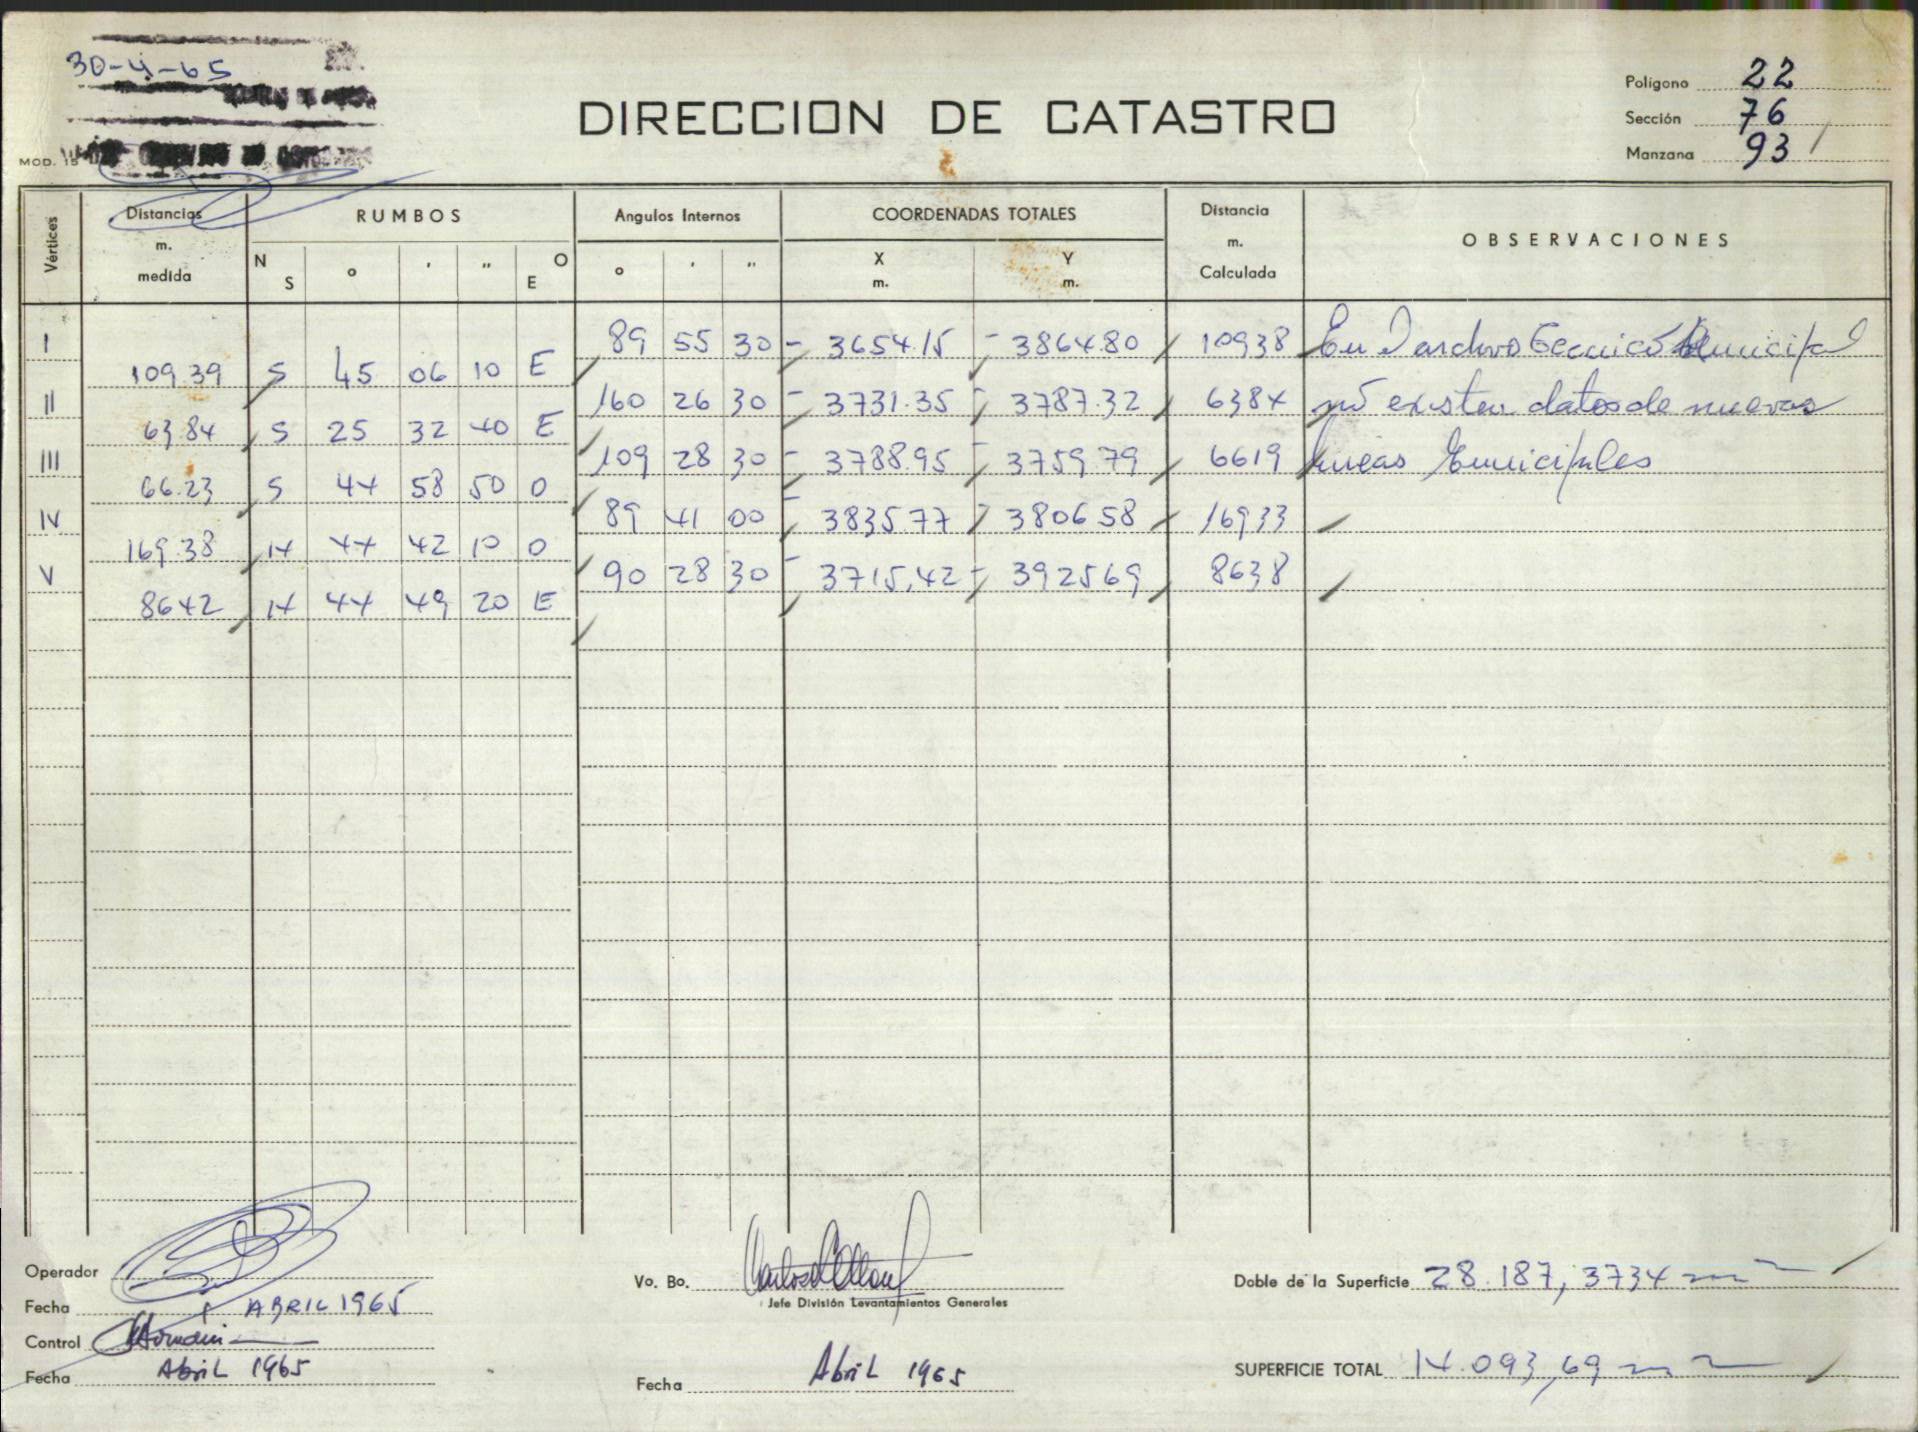 30-4-65
DIRECCION DE CATASTRO
Polígono 22
Sección 76
Manzana 93
MOD. 15
Vértices
Distancias m. medida
RUMBOS
N S o ' " O E
Angulos Internos
o ' "
COORDENADAS TOTALES
X m. Y m.
Distancia m. Calculada
OBSERVACIONES
I 89 55 30 - 3654.15 - 3864.80 10938 En archivo Tecnico Municipal
109.39 S 45 06 10 E
II 160 26 30 - 3731.35 - 3787.32 6384 no existen datos de nuevas
63.84 S 25 32 40 E
III 109 28 30 - 3788.95 - 3759.79 6619 lineas Municipales
66.23 S 44 58 50 O
IV 89 41 00 - 3835.77 - 3806.58 16933
169.38 N 44 42 10 O
V 90 28 30 - 3715,42 - 392569 8638
8642 N 44 49 20 E
Operador
Fecha ABRIL 1965
Control
Fecha Abril 1965
Vo. Bo.
Jefe División Levantamientos Generales
Fecha Abril 1965
Doble de la Superficie 28.187,3734 m2
SUPERFICIE TOTAL 14.093,69 m2